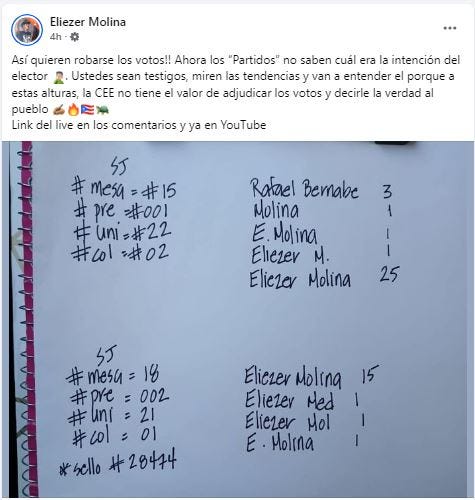 Eliezer Molina
4h
Así quieren robarse los votos!! Ahora los "Partidos" no saben cuál era la intención del
elector 🤦🏻‍♂️. Ustedes sean testigos, miren las tendencias y van a entender el porque a
estas alturas, la CEE no tiene el valor de adjudicar los votos y decirle la verdad al
pueblo ✍🏽🔥🇵🇷🐢
Link del live en los comentarios y ya en YouTube
SJ
# mesa = #15
# pre = #001
# uni = #22
# col = #02
Rafael Bernabe 3
Molina 1
E. Molina 1
Eliezer M. 1
Eliezer Molina 25
SJ
# mesa = 18
# pre = 002
# uni = 21
# col = 01
* sello # 28474
Eliezer Molina 15
Eliezer Med 1
Eliezer Mol 1
E. Molina 1